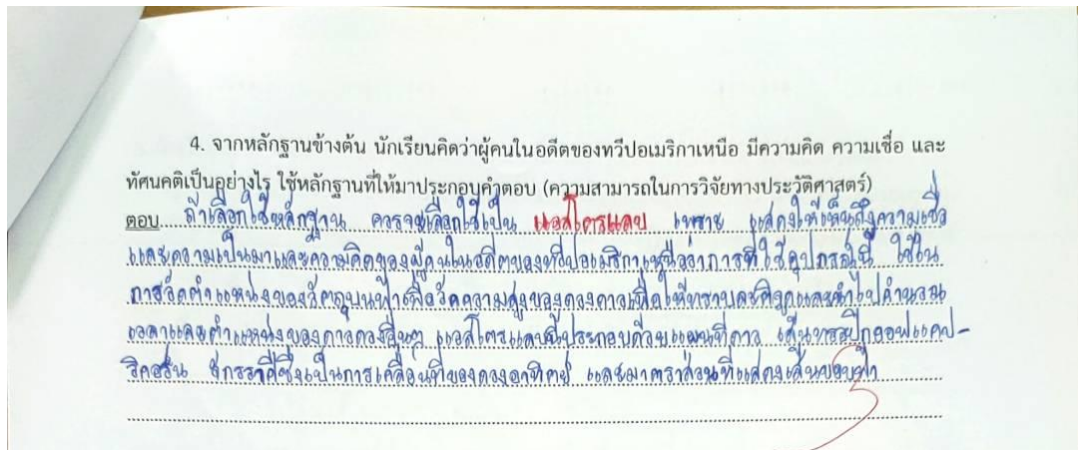 4. จากหลักฐานข้างต้น นักเรียนคิดว่าผู้คนในอดีตของทวีปอเมริกาเหนือ มีความคิด ความเชื่อ และ
ทัศนคติเป็นอย่างไร ใช้หลักฐานที่ให้มาประกอบคำตอบ (ความสามารถในการวิจัยทางประวัติศาสตร์)
ตอบ ถ้าเลือกใช้หลักฐาน ควรจะเลือกใช้เป็น แอสโตรแลบ เพราะ แสดงให้เห็นถึงความเชื่อ
และความเป็นมาและความคิดของผู้คนในอดีตของทวีปอเมริกาเหนือว่าการที่ใช้อุปกรณ์นี้ ใช้ใน
การวัดตำแหน่งของวัตถุบนฟ้าเพื่อวัดความสูงของดวงดาวเพื่อให้ทราบละติจูดและนำไปคำนวณ
เวลาและตำแหน่งของดาวดวงอื่นๆ แอสโตรแลบนี้ประกอบด้วยแผนที่ดาว เส้นทรอปิกออฟแคป-
ริคอร์น จักรราศีซึ่งเป็นการเคลื่อนที่ของดวงอาทิตย์ และมาตราส่วนที่แสดงเส้นขอบฟ้า